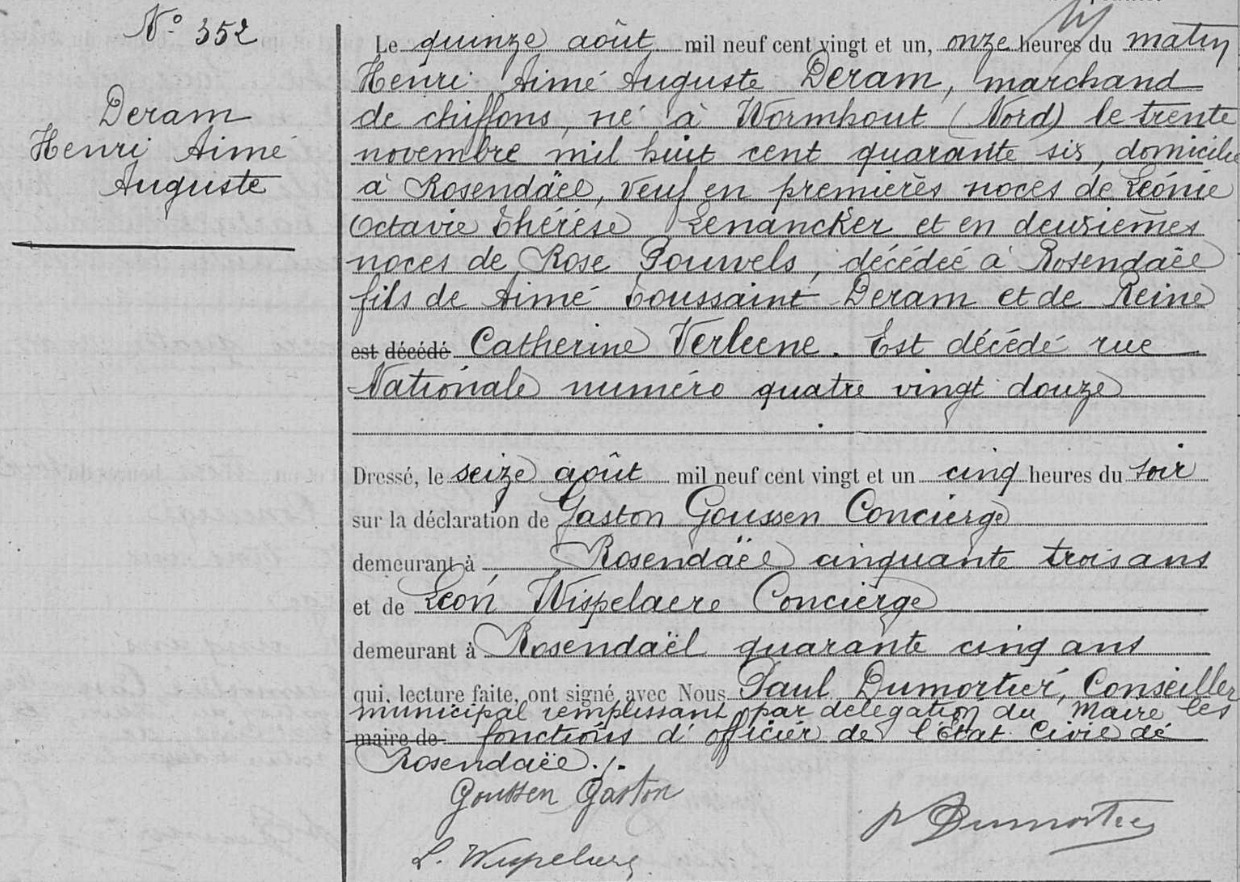 N° 352
Deram
Henri Aimé
Auguste
Le quinze août mil neuf cent vingt et un, onze heures du matin
Henri Aimé Auguste Deram, marchand
de chiffons, né à Wormhout (Nord) le trente
novembre mil huit cent quarante six, domicilié
à Rosendaël, veuf en premières noces de Léonie
Octavie Thérèse Lenancker et en deuxièmes
noces de Rose Pouwels, décédée à Rosendaël
fils de Aimé Toussaint Deram et de Reine
est décédé Catherine Verleene. Est décédé rue
Nationale numéro quatre vingt douze
Dressé, le seize août mil neuf cent vingt et un cinq heures du soir
sur la déclaration de Gaston Goussen Concierge
demeurant à Rosendaël cinquante trois ans
et de Léon Wispelaere Concierge
demeurant à Rosendaël quarante cinq ans
qui, lecture faite, ont signé avec Nous Paul Dumortier, Conseiller
municipal remplissant par délégation du Maire les
maire de fonctions d'officier de l'Etat Civil de
Rosendaël ./.
Goussen Gaston
P Dumortier
L. Wispelaere